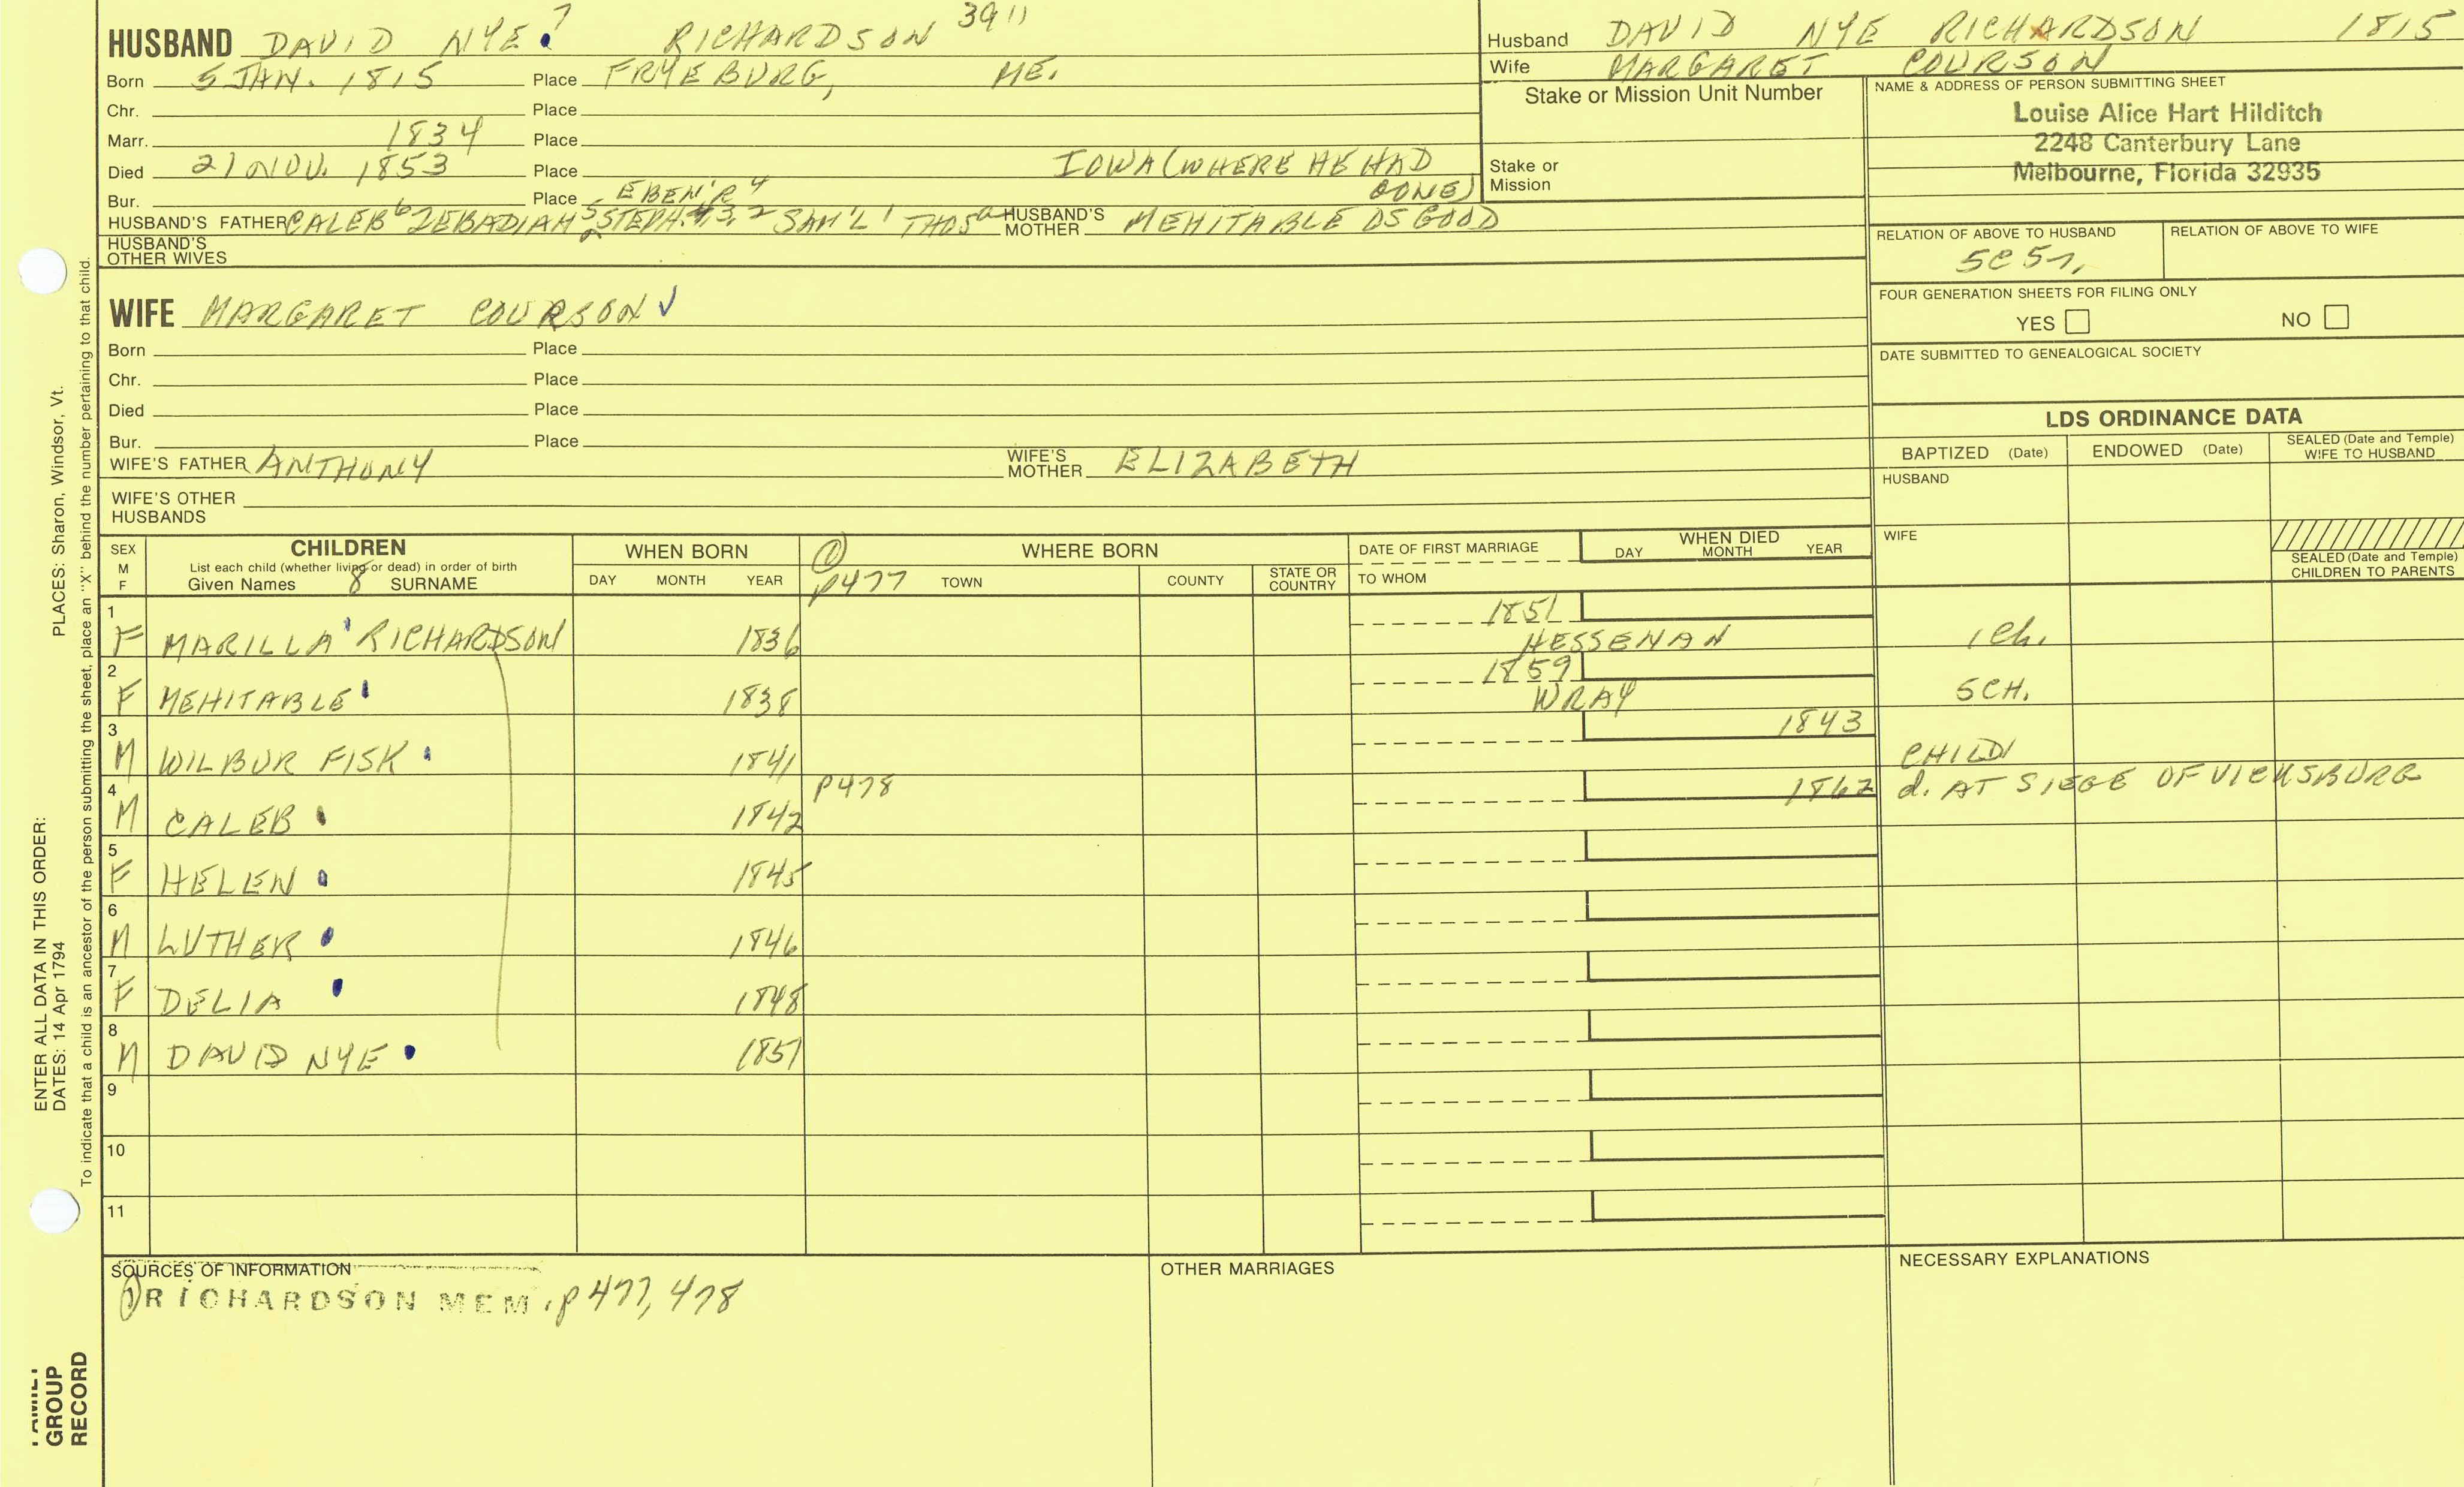 HUSBAND DAVID NYE 7 RICHARDSON 3911
Born 5 JAN. 1815 Place FRYEBURG, ME.
Chr. Place
Marr. 1834 Place
Died 21 NOV. 1853 Place IOWA (WHERE HE HAD GONE)
Bur. Place EBEN'R 4
HUSBAND'S FATHER CALEB 6 ZEBADIAH 5 STEPH. 3, 2 SAM'L 1 THOS HUSBAND'S MOTHER MEHITABLE OSGOOD
HUSBAND'S OTHER WIVES
Husband DAVID NYE RICHARDSON 1815
Wife MARGARET COURSON
Stake or Mission Unit Number
Stake or Mission
NAME & ADDRESS OF PERSON SUBMITTING SHEET
Louise Alice Hart Hilditch
2248 Canterbury Lane
Melbourne, Florida 32935
RELATION OF ABOVE TO HUSBAND RELATION OF ABOVE TO WIFE
FOUR GENERATION SHEETS FOR FILING ONLY
YES NO
DATE SUBMITTED TO GENEALOGICAL SOCIETY
WIFE MARGARET COURSON ✓
Born Place
Chr. Place
Died Place
Bur. Place
WIFE'S FATHER ANTHONY WIFE'S MOTHER ELIZABETH
WIFE'S OTHER HUSBANDS
LDS ORDINANCE DATA
BAPTIZED (Date) ENDOWED (Date) SEALED (Date and Temple) WIFE TO HUSBAND
HUSBAND
WIFE
SEALED (Date and Temple) CHILDREN TO PARENTS
SEX M F
CHILDREN
List each child (whether living or dead) in order of birth
Given Names 8 SURNAME
WHEN BORN
DAY MONTH YEAR
① WHERE BORN
p477 TOWN COUNTY STATE OR COUNTRY
DATE OF FIRST MARRIAGE
TO WHOM
WHEN DIED
DAY MONTH YEAR
1 F MARILLA RICHARDSON 1836 1851 HESSENAN 1 Ch.
2 F MEHITABLE 1838 1859 WRAY 5 CH.
3 M WILBUR FISK 1841 1843 CHILD
4 M CALEB 1842 P478 1862 d. AT SIEGE OF VICKSBURG
5 F HELEN 1845
6 M LUTHER 1846
7 F DELIA 1848
8 M DAVID NYE 1851
9
10
11
SOURCES OF INFORMATION
① RICHARDSON MEM. p477, 478
OTHER MARRIAGES
NECESSARY EXPLANATIONS
ENTER ALL DATA IN THIS ORDER:
DATES: 14 Apr 1794 PLACES: Sharon, Windsor, Vt.
To indicate that a child is an ancestor of the person submitting the sheet, place an "X" behind the number pertaining to that child.
GROUP
RECORD